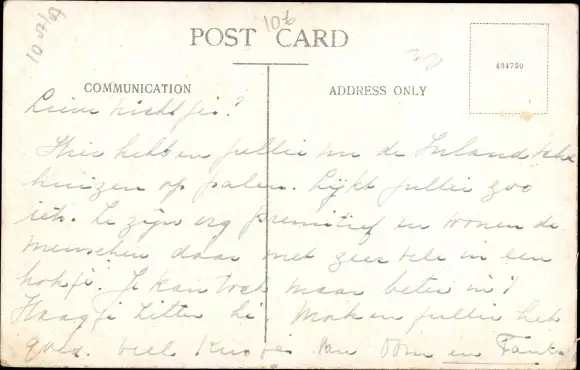 10
10
POST CARD
COMMUNICATION
ADDRESS ONLY
434750
Lieve nichtjes!
Hier hebben jullie nu de Inlandsche
huizen op palen. Lijkt jullie zoo
iets. Ze zijn erg premitief en wonen de
menschen daar met zeer vele in een
hokje. Je kan toch maar beter in 't
Haagje zitten hè. Maken jullie het
goed. Veel van Oom en Tante